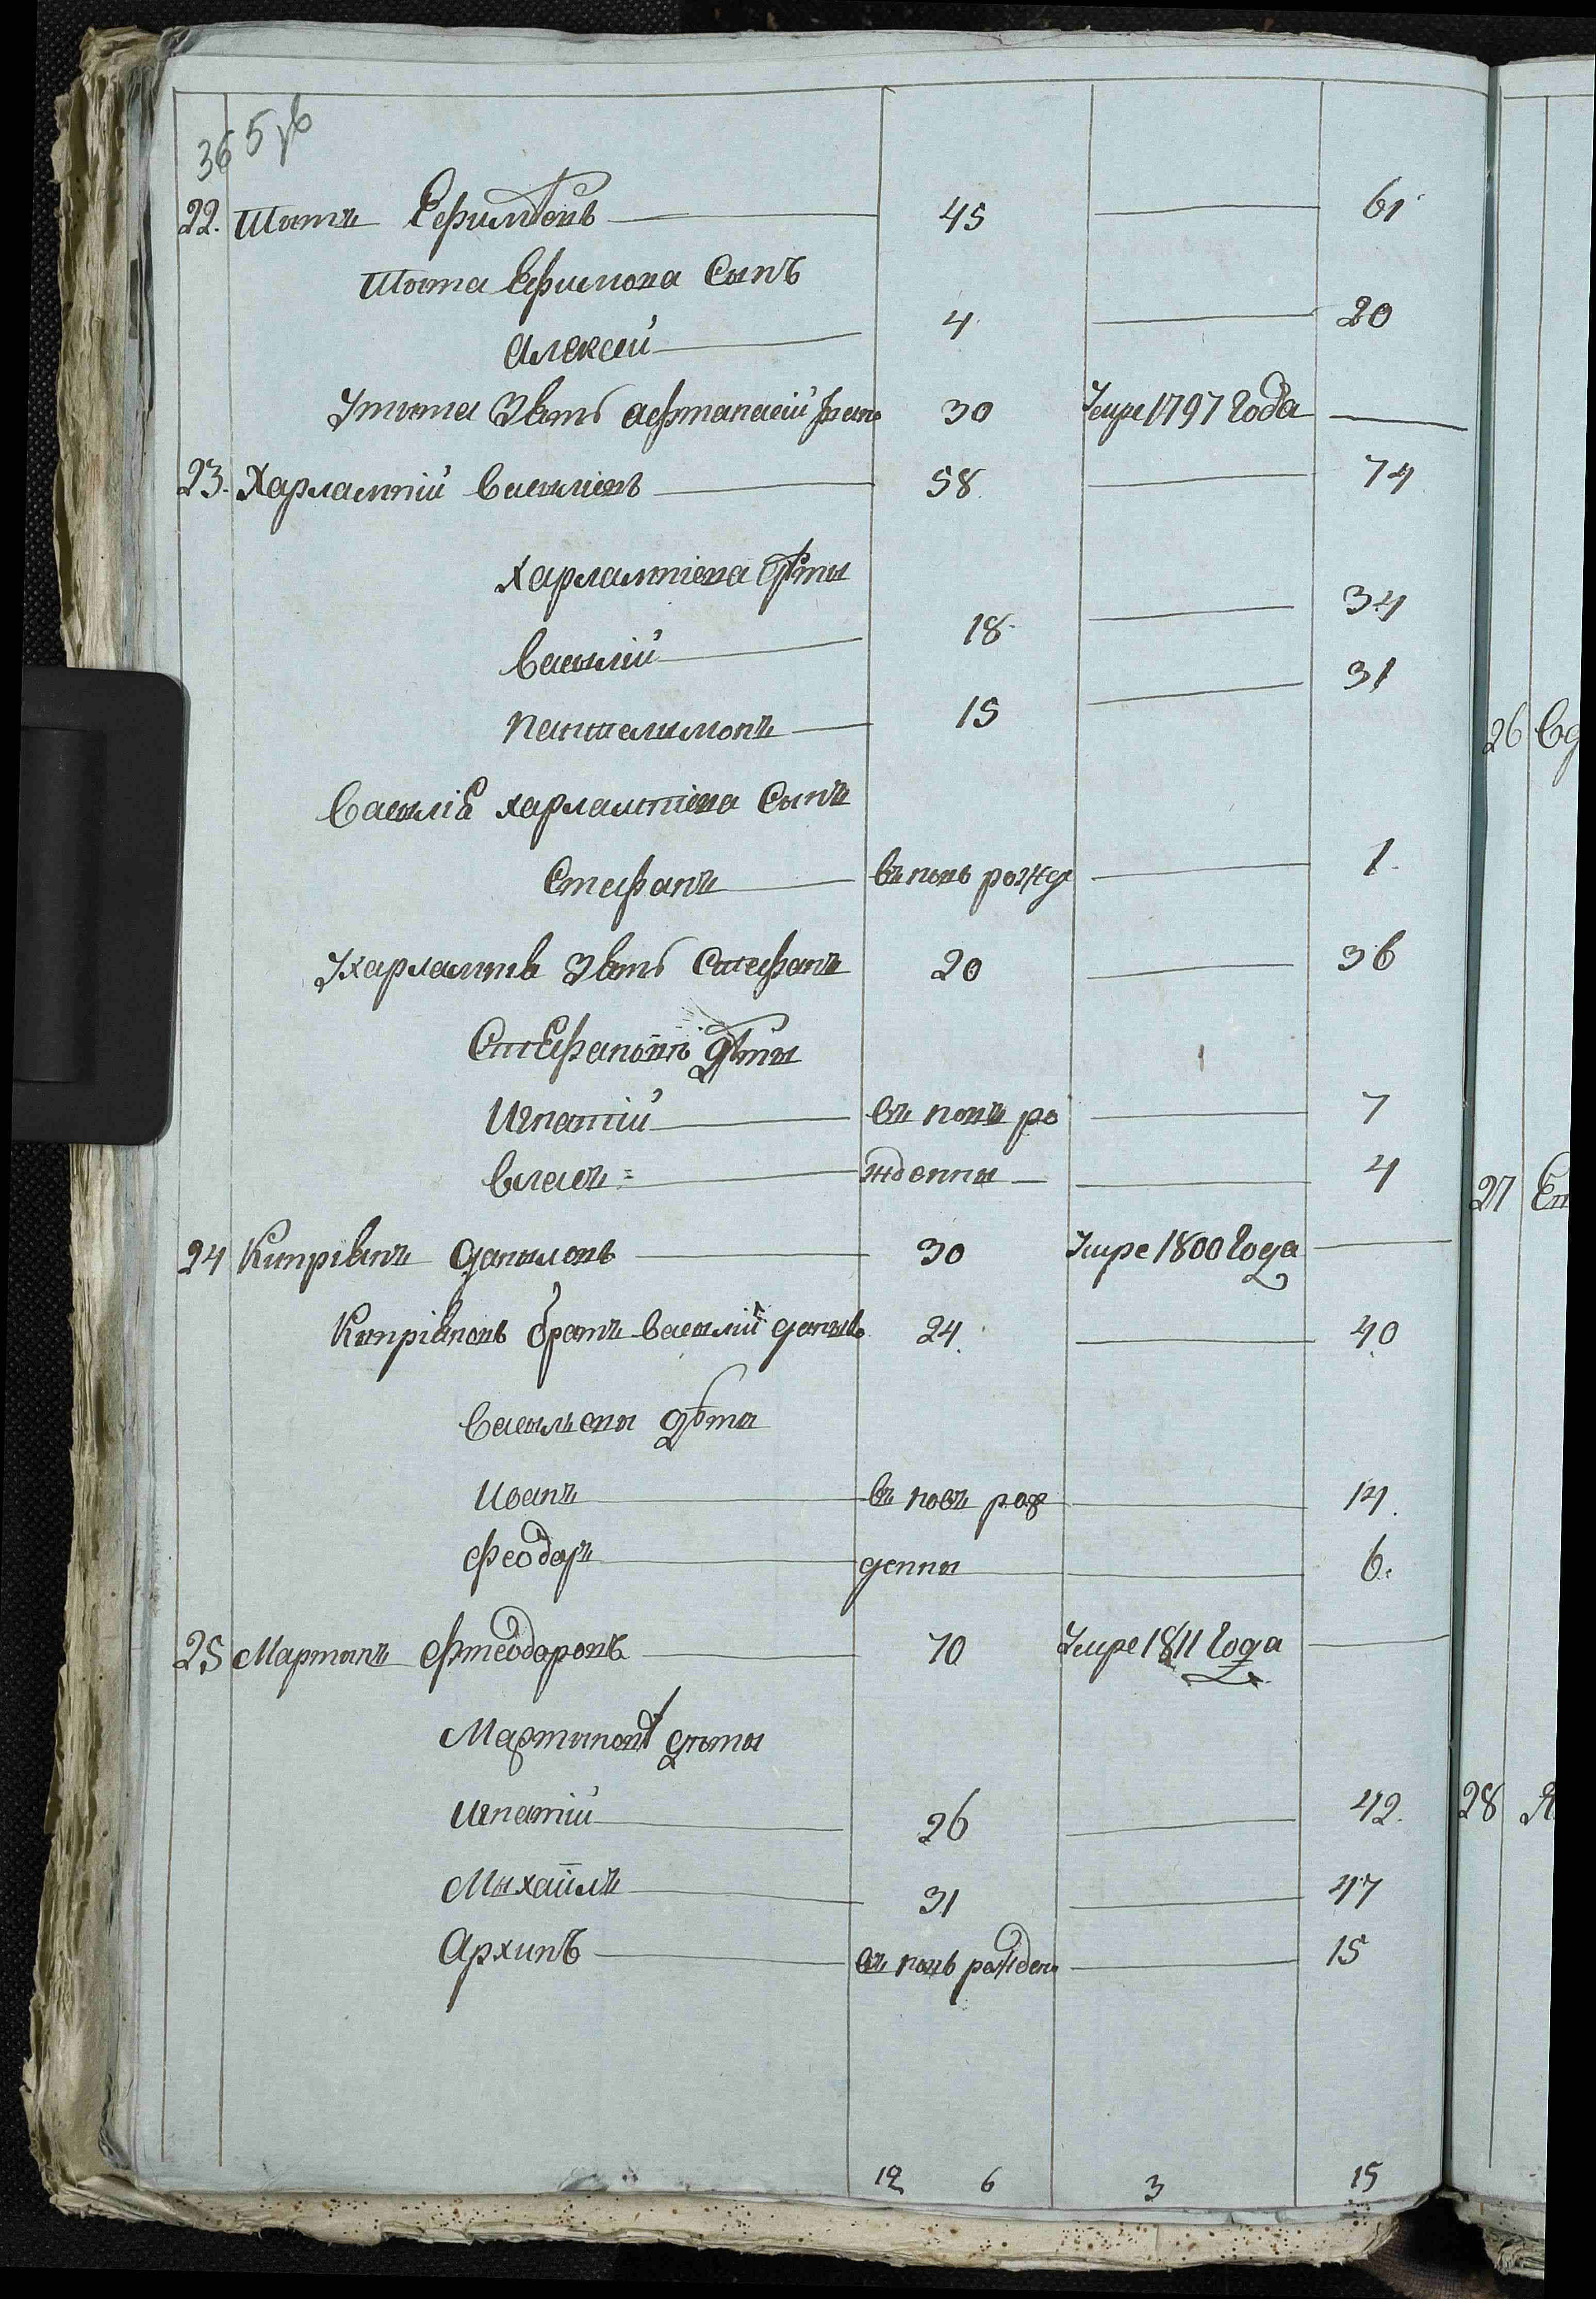 36 5
22. Титъ Ефимовъ 45 61
Тита Ефимова Сынъ
Алексей 4 20
Утита Зять афтанасий 30 Умре 1797 Года
23. Харлампий Василиевъ 58 74
Харлампиева Дети
Василий 18 34
Пантелимонъ 15 31
Василиа харлампиева Сынъ
Стефанъ въ новь рожде 1
Ухарлампа Зять Стефанъ 20 36
Стефановы Дети
Игнатий въ новъ ро 7
Власъ жденны 4
24 Киприанъ Даныловъ 30 Умре 1800 Года
Киприановъ братъ василий данылв 24 40
Васильевы дети
Иванъ въ новъ рож 14
Феодоръ денны 6
25 Мартинъ Фтеодоровъ 70 Умре 1811 Года
Мартиновы дети
Игнатий 26 42
Мыхаилъ 31 47
Архипъ въ новь рожденъ 15
12 6 3 15
26
27
28